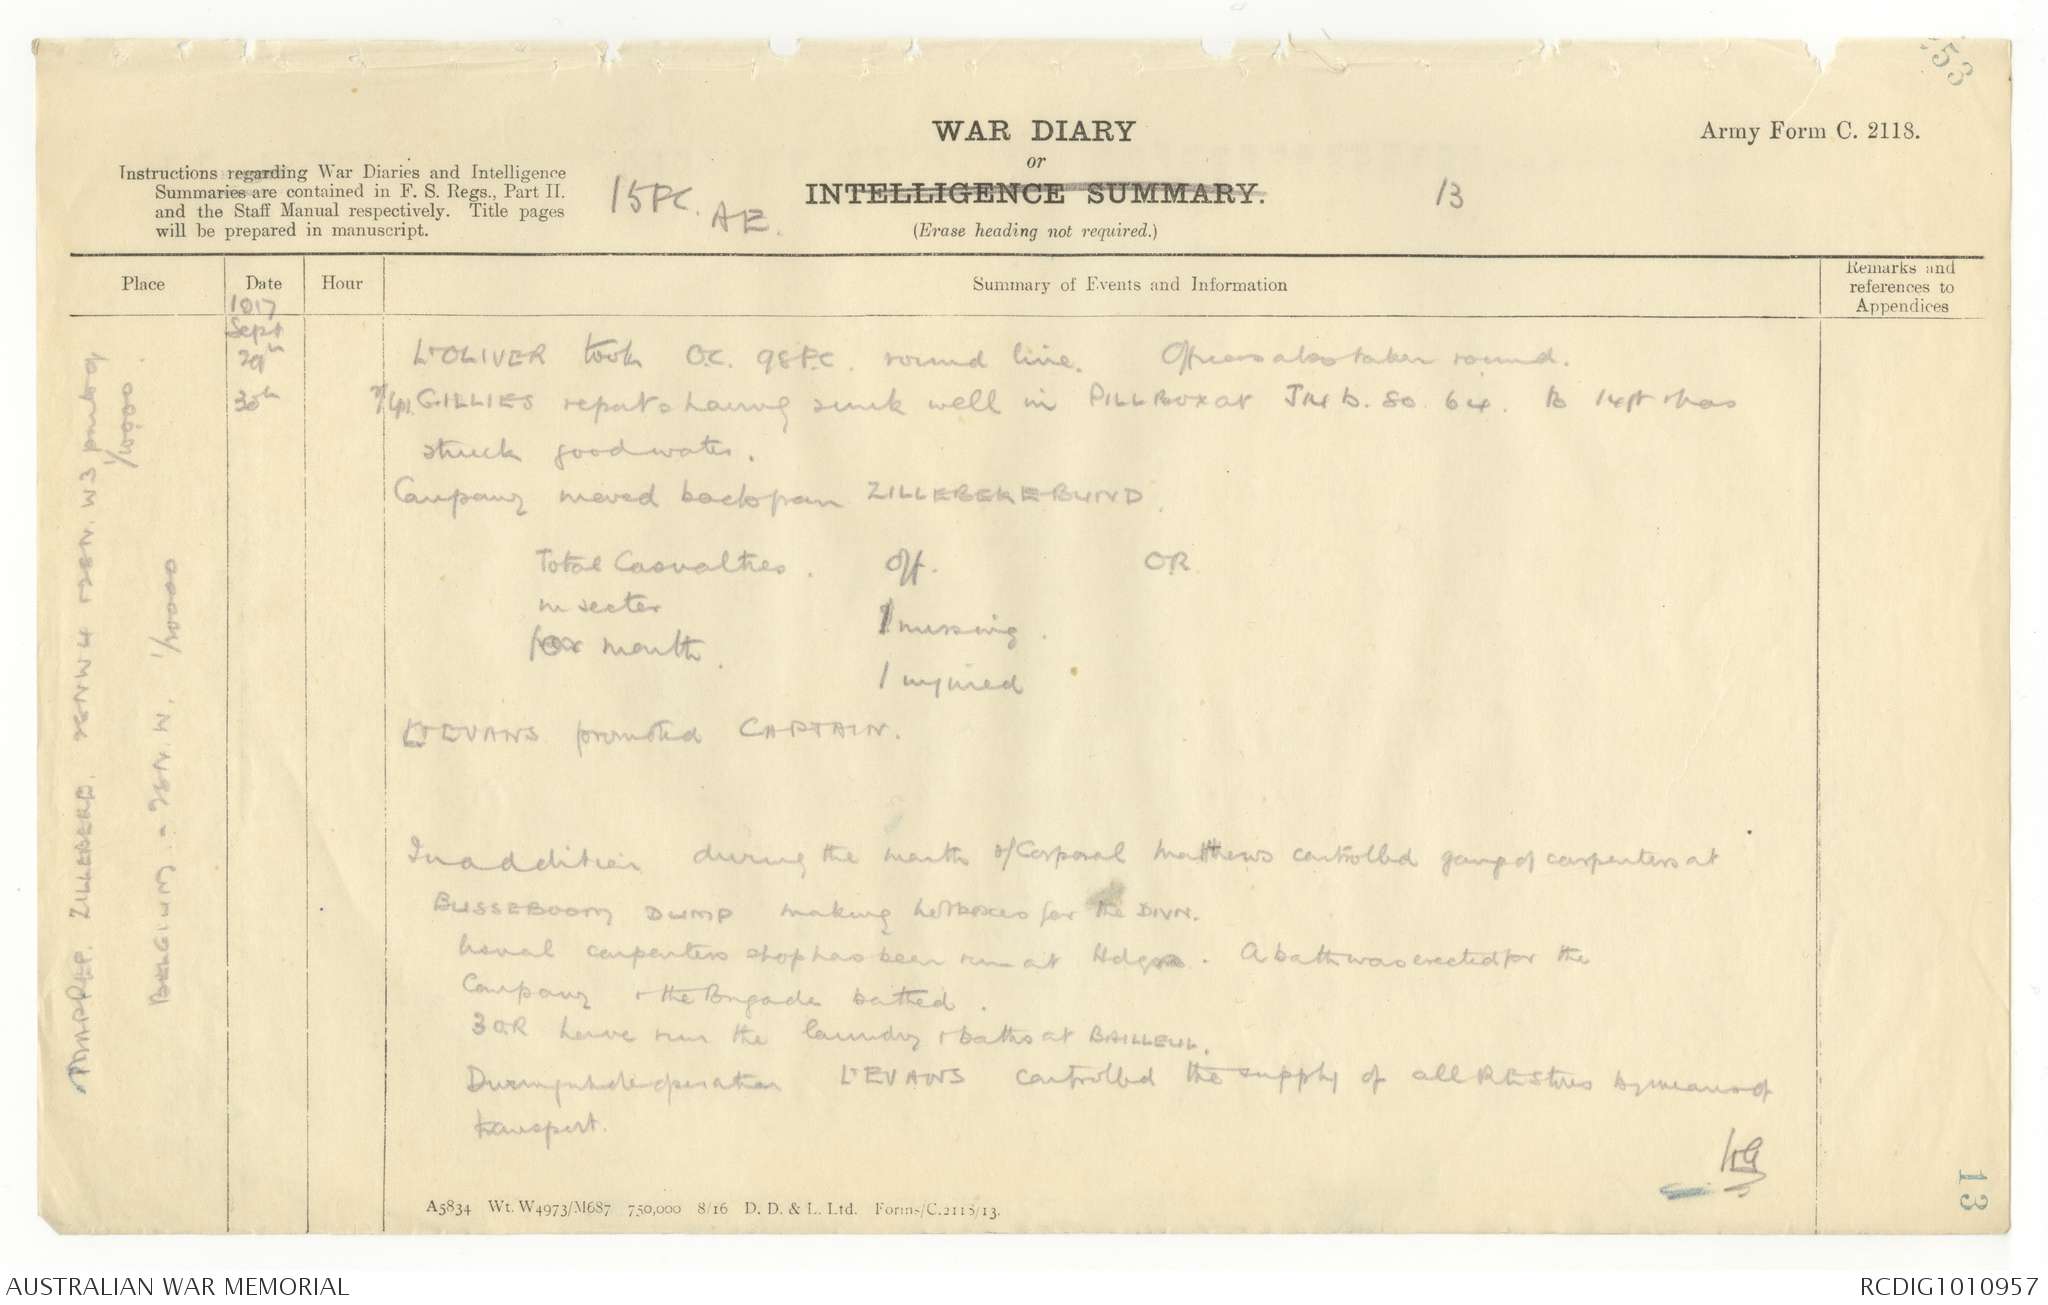 53
WAR DIARY
or
INTELLIGENCE SUMMARY.
(Erase heading not required.)
Army Form C. 2118.
Instructions regarding War Diaries and Intelligence
Summaries are contained in F. S. Regs., Part II.
and the Staff Manual respectively. Title pages
will be prepared in manuscript.
15FC. AE.
13
Place
Date
Hour
Summary of Events and Information
Remarks and
references to
Appendices
1917
Sept
29th
Lt OLIVER took O.C. 98F.C. round line. Officers also taken round.
30th
GILLIES reports having sunk well in PILLBOX at J14 b. 80. 64. to 14ft & has
struck good water.
Company moved back from ZILLEBEKE BUND.
Total Casualties. Off. OR
in sector 1 missing.
for month. 1 injured
Lt EVANS promoted CAPTAIN.
In addition during the month L/Corporal Matthews controlled gang of carpenters at
BUSSEBOOM DUMP making hotboxes for the DIVN.
Usual carpenters shop has been run at Hdqrs. A bath was erected for the
Company & the Brigade bathed.
3 OR have run the laundry & baths at BAILLEUL.
During whole operation Lt EVANS controlled the supply of all RE Stores by means of
transport.
MAP REF. ZILLEBEKE. 28NW4 & 28N.W3 parts of
1/10000
BELGIUM - 28N.W. 1/20000
A5834 Wt. W4973/M687 750,000 8/16 D. D. & L. Ltd. Forms/C.2118/13.
13
AUSTRALIAN WAR MEMORIAL
RCDIG1010957